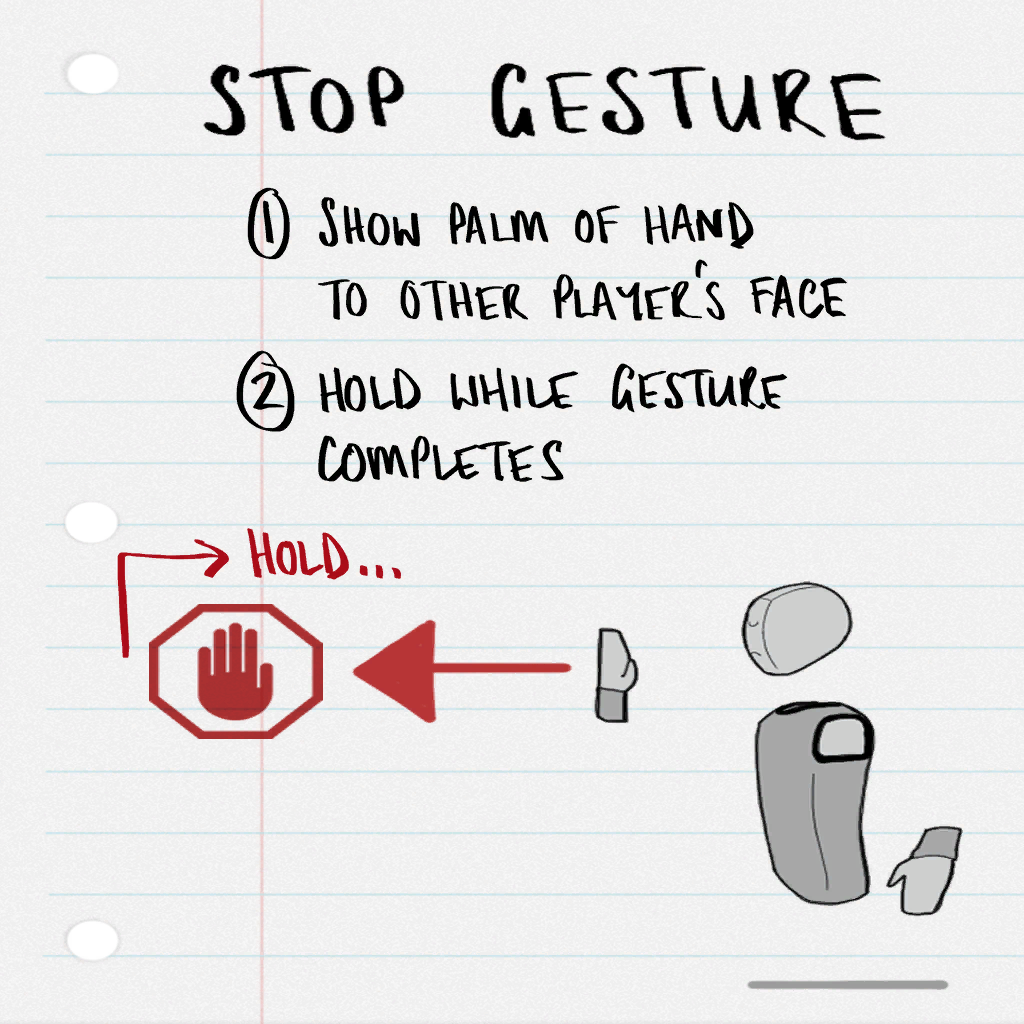 STOP GESTURE
1 SHOW PALM OF HAND
TO OTHER PLAYER'S FACE
2 HOLD WHILE GESTURE
COMPLETES
HOLD...